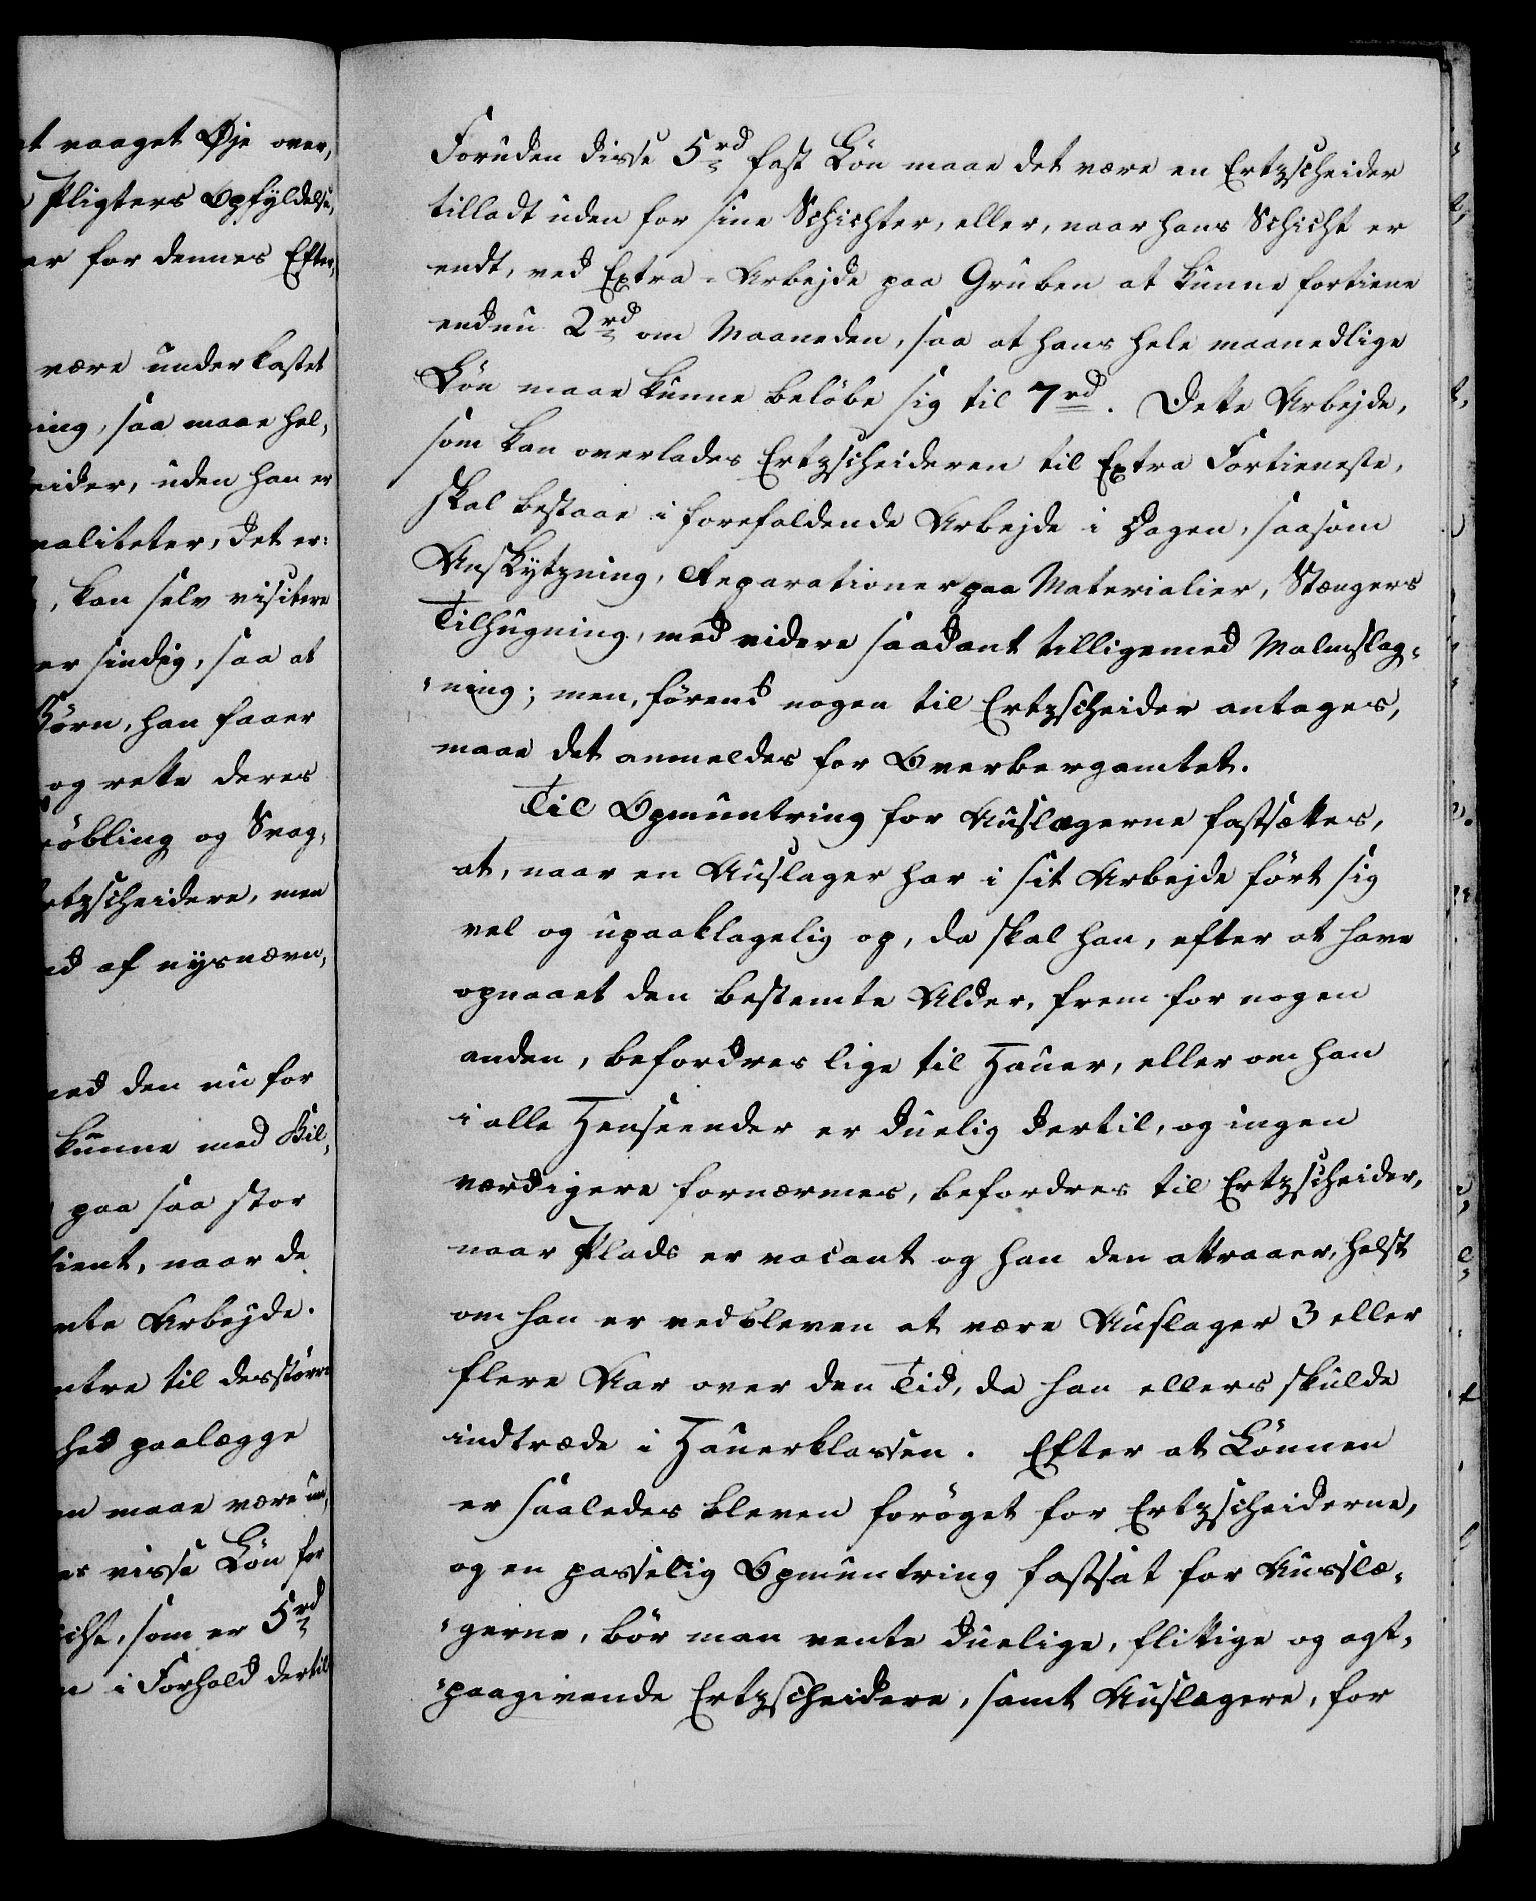 t vaaget Øje over,
Pligters Opfyldelse,
er for dennes Efter,
være underkastet
ing, saa maae hel,
eider, uden han er
valiteter, det er:
, kan selv visitere
er sindig, saa at
Börn, han faaer
og rette deres
öbling og Svag,
rtzscheidere, men
d af nysnævn,
med den nu for
kunne med Bil,
paa saa stor
tient, naar de
nte Arbejde.
ntre til desstörre
hed paalægge
n maae være un,
es visse Lön for
icht, som er 5 rd
n i Forhold dertil
Foruden disse 5 rd fast Lön maae det være en Ertzscheider
tilladt uden for sine Schichter, eller, naar hans Schicht er
endt, ved Extra-Arbejde paa Gruben at kunne fortiene
endnu 2 rd om Maaneden, saa at hans hele maanedlige
Lön maae kunne belöbe sig til 7 rd. Dette Arbejde,
som kan overlades Ertzscheideren til Extra Fortieneste,
skal bestaae i forefaldende Arbejde i Dagen, saasom
Anskytzning, Reparationer paa Materialier, Stængers
Tilhugning, med videre saadant tilligemed Malmslag-
-ning; men, förend nogen til Ertzscheider antages,
maae det anmeldes for Overbergamtet.
Til Opmuntring for Auslægerne fastsættes,
at, naar en Auslager har i sit Arbejde fört sig
vel og upaaklagelig op, da skal han, efter at have
opnaaet den bestemte Alder, frem for nogen
anden, befordres lige til Hauer, eller om han
i alle Henseender er duelig dertil, og ingen
værdigere fornærmes, befordres til Ertzscheider,
naar Plads er vacant og han den attraaer, helst
om han er vedbleven at være Auslager 3 eller
flere Aar over den Tid, da han ellers skulde
indtræde i Hauerklassen. Efter at Lönnen
er saaledes bleven foröget for Ertzscheiderne,
og en passelig Opmuntring fastsat for Ausslæ-
-gerne, bör man vente duelige, flittige og agt-
-paagivende Ertzscheidere, samt Auslægere, for